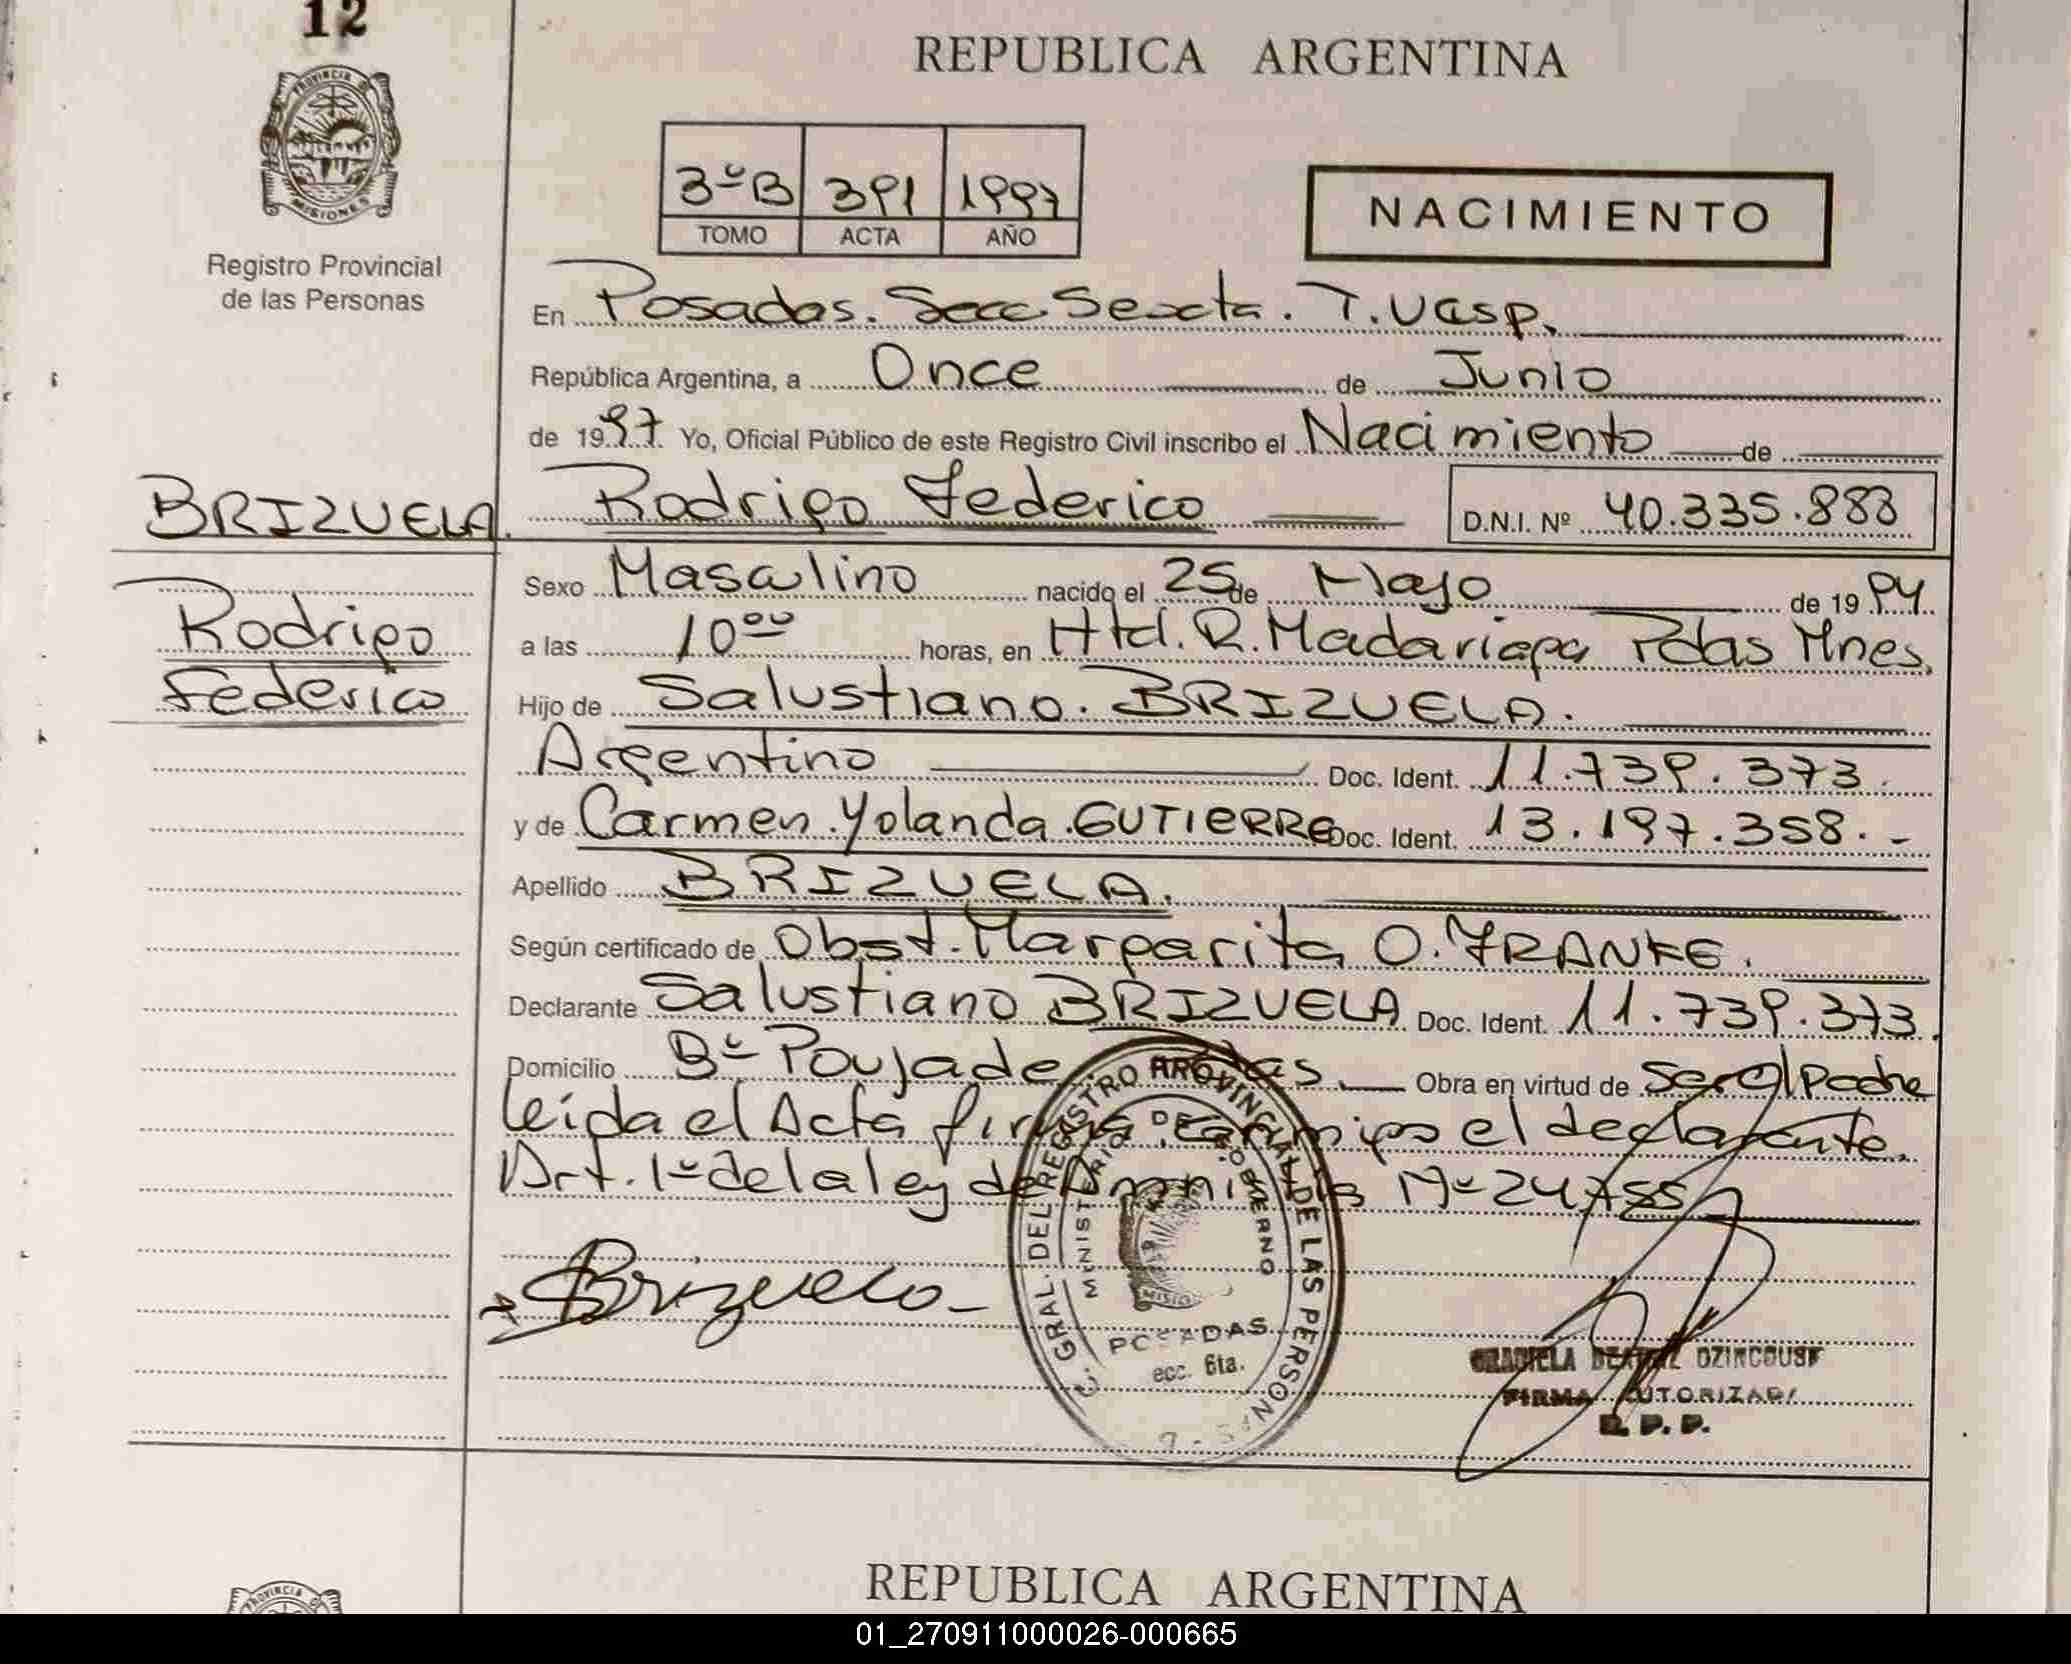 12
PROVINCIA DE
MISIONES
Registro Provincial
de las Personas
REPUBLICA ARGENTINA
3º B 391 1997
TOMO ACTA AÑO
NACIMIENTO
En Posadas. Secc Sexta. T. Vesp.
República Argentina, a Once de Junio
de 1997. Yo, Oficial Público de este Registro Civil inscribo el Nacimiento de
BRIZUELA. Rodrigo Federico D.N.I. Nº 40.335.883
Rodrigo
Federico
Sexo Masculino nacido el 25 de Mayo de 1994
a las 10⁰⁰ horas, en Htal. R. Madariaga Pdas Mnes.
Hijo de Salustiano. BRIZUELA.
Argentino Doc. Ident. 11.739.373.
y de Carmen. Yolanda. GUTIERRE Doc. Ident. 13.197.358.-
Apellido BRIZUELA.
Según certificado de Obst. Margarita O. FRANKE.
Declarante Salustiano BRIZUELA Doc. Ident. 11.739.373.
Domicilio Bº Poujade Pdas. Obra en virtud de Ser el Padre
leida el Acta firma conmigo el declarante.
Art. 1º de la ley de Amnistia Nº 24.755
Brizuela
GRAL. DEL REGISTRO PROVINCIAL DE LAS PERSONAS
MINISTERIO DE GOBIERNO
POSADAS
ecc. 6ta.
GRACIELA BEATRIZ
FIRMA AUTORIZADA
R. P. P.
REPUBLICA ARGENTINA
PROVINCIA
01_270911000026-000665